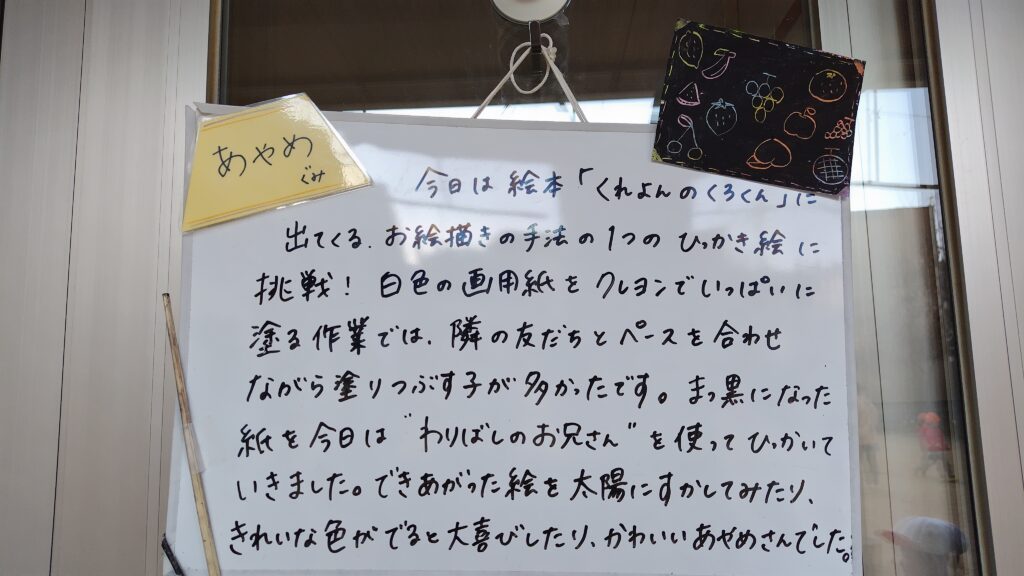 あやめ
ぐみ
今日は絵本「くれよんのくろくん」に
出てくる、お絵描きの手法の1つのひっかき絵に
挑戦！白色の画用紙をクレヨンでいっぱいに
塗る作業では、隣の友だちとペースを合わせ
ながら塗りつぶす子が多かったです。まっ黒になった
紙を今日は“わりばしのお兄さん”を使ってひっかいて
いきました。できあがった絵を太陽にすかしてみたり、
きれいな色がでると大喜びしたり、かわいいあやめさんでした。